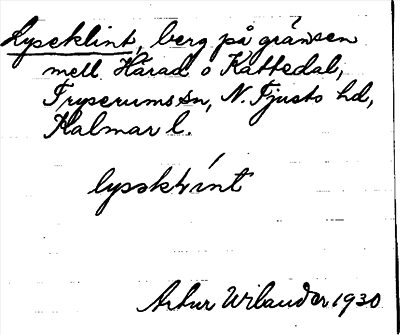 Lyseklint, berg på gränsen
mell. Hårad o Kattedal,
Fryserums sn, N. Tjusts hd,
Kalmar l.
lysəklint
Artur Wilander 1930